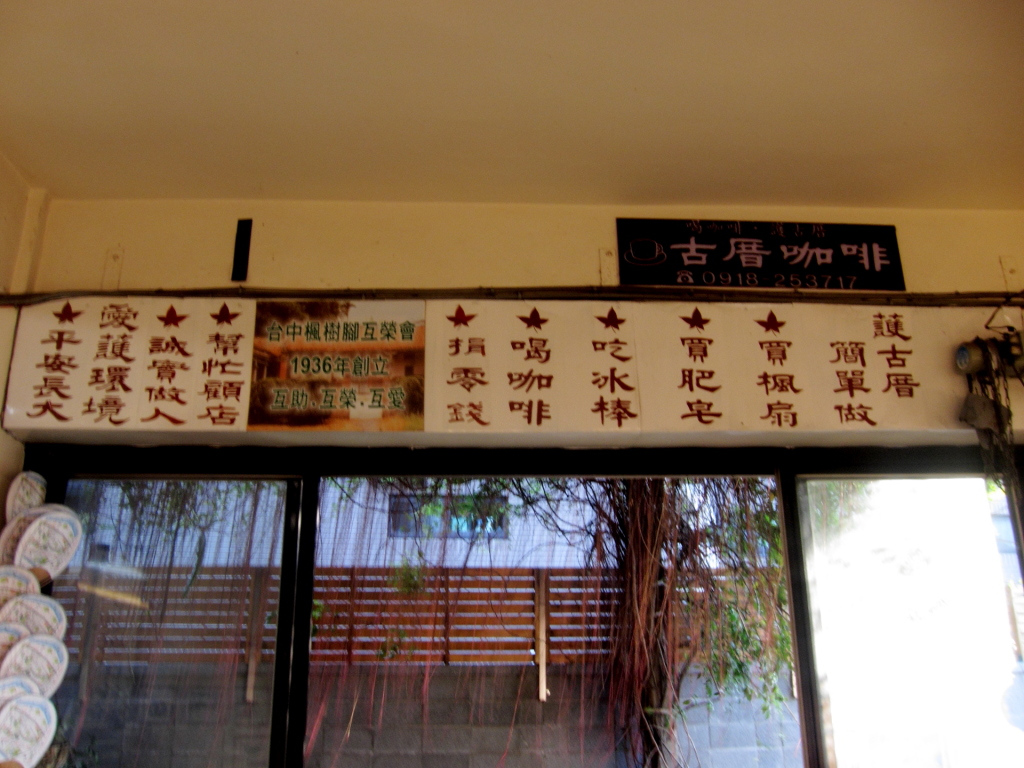 喝咖啡·護古厝
古厝咖啡
☎0918 253717
護古厝
簡單做
★買楓扇
★買肥皂
★吃冰棒
★喝咖啡
★捐零錢
台中楓樹腳互榮會
1936年創立
互助.互榮.互愛
★幫忙顧店
★誠實做人
愛護環境
★平安長大